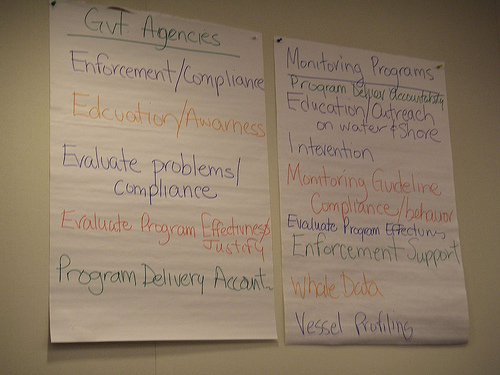 Gvt Agencies
Enforcement/Compliance
Edcuation/Awarness
Evaluate problems/
compliance
Evaluate Program Effectivness
Justify
Program Delivery Account.
Monitoring Programs
Program Accountability
Education/Outreach
on water & shore
Intervention
Monitoring Guideline
Compliance/behavior
Evaluate Program
Enforcement Support
Whale Data
Vessel Profiling